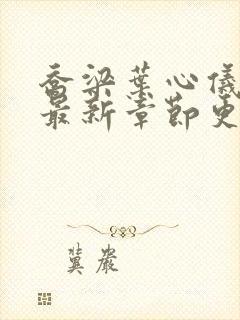 乔梁葉心儀
最新章節更
冀嚴